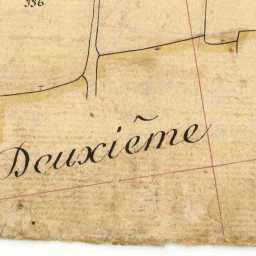 336
Deuxième